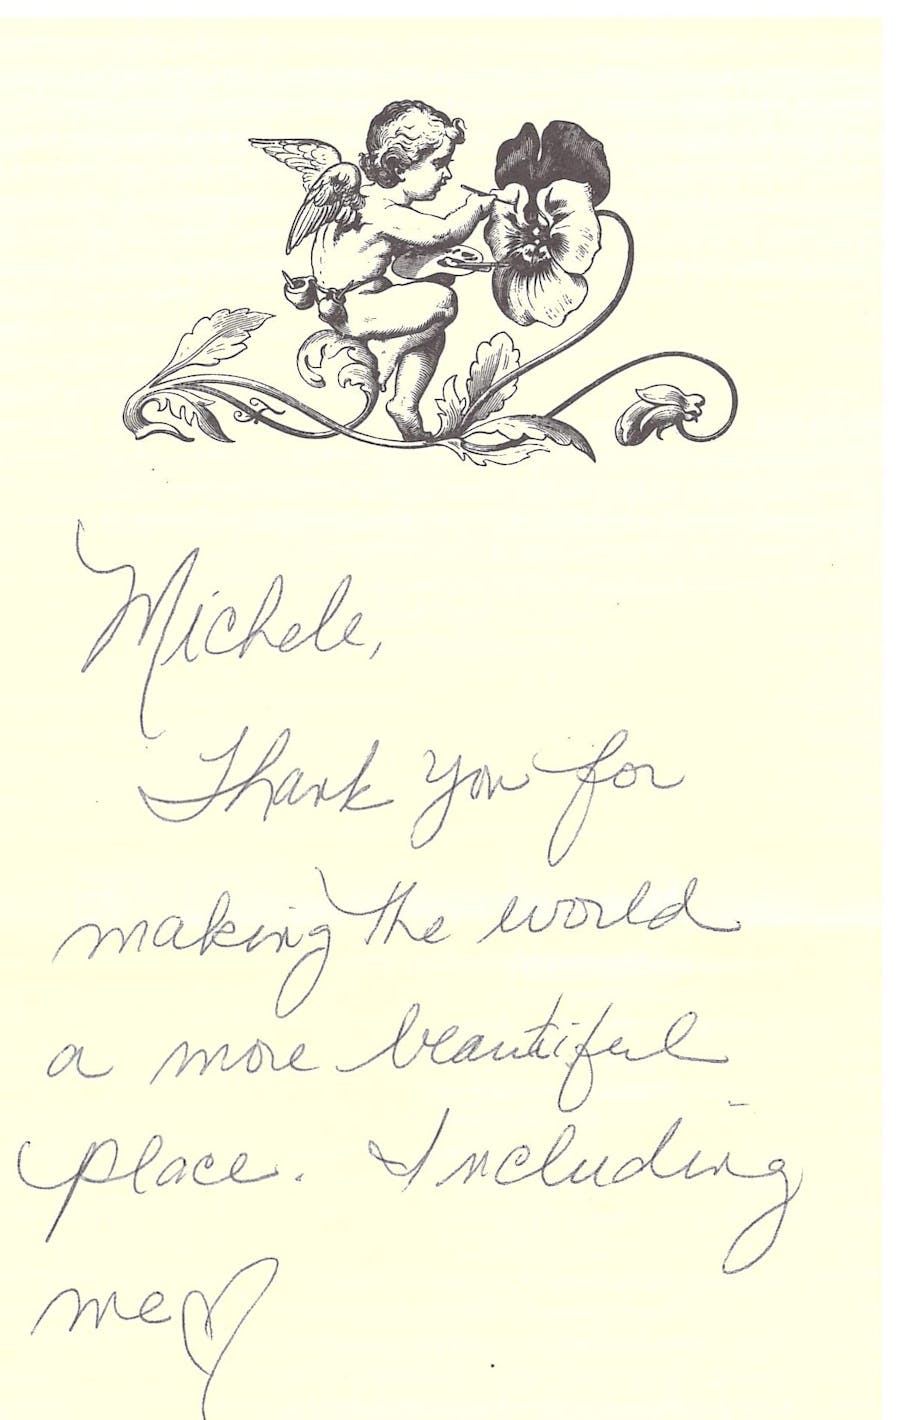 Michele,
Thank you for
making the world
a more beautiful
place. Including
me♡